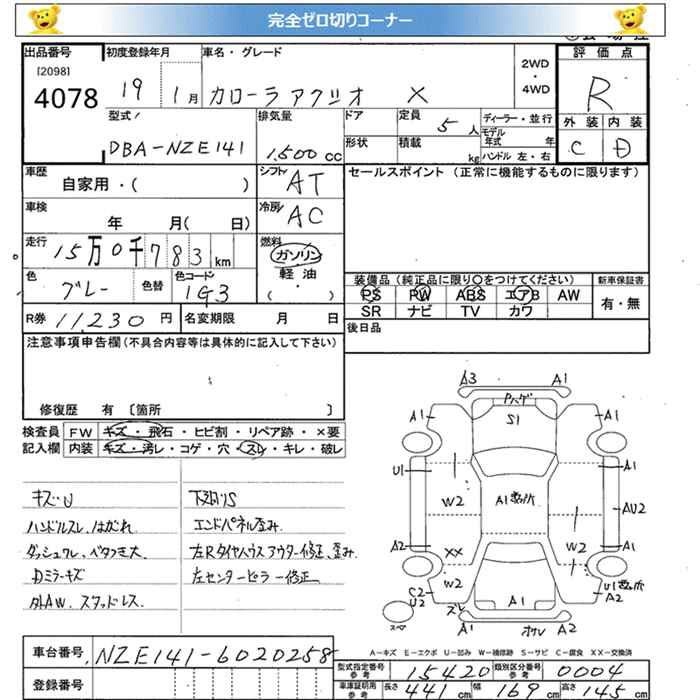 完全ゼロ切りコーナー
出品番号 初度登録年月 車名・グレード 評価点
[2098] 2WD・4WD
4078 19年 1月 カローラ アクシオ X R
型式 排気量 ドア 定員 5人 ディーラー・並行 外装 内装
DBA-NZE141 1,500cc 形状 積載 kg モデル年式 年 ハンドル 左・右 C D
車歴 シフト AT セールスポイント (正常に機能するものに限ります)
自家用・( )
車検 年 月( 日) 冷房 AC
走行 15万0千783km 燃料 ガソリン
軽油・( )
色 グレー 色替 色コード 1G3
装備品 (純正品に限り○をつけてください) 新車保証書
PS PW ABS エアB AW 有・無
SR ナビ TV カワ
R券 11,230円 名変期限 月 日 後日品
注意事項申告欄(不具合内容等は具体的に記入して下さい)
修復歴 有 〔箇所 〕
検査員 FW キズ・飛石・ヒビ割・リペア跡・×要
記入欄 内装 キズ・汚レ・コゲ・穴・スレ・キレ・破レ
キズU 下廻りS
ハンドルスレ、はがれ エンドパネル歪み
ダッシュワレ、ベタつき大 左Rタイヤハウス アウター修正、歪み
Dミラーキズ 左センターピラー修正
外AW、スタッドレス
A3 A1
Pハゲ
A1 S1 A1
U1 A1
W2 A1 AU2
A2 A1
XX W2
W2
C2 U2 A1 U1 A2
スレ
スペア A2
A-キズ E-エクボ U-凹み W-補修跡 S-サビ C-腐食 XX-交換済
車台番号 NZE141-6020258
登録番号
型式指定番号 参考 15420 類別区分番号 参考 0004
車庫証明用 参考 長さ 441cm 幅 169cm 高さ 145cm